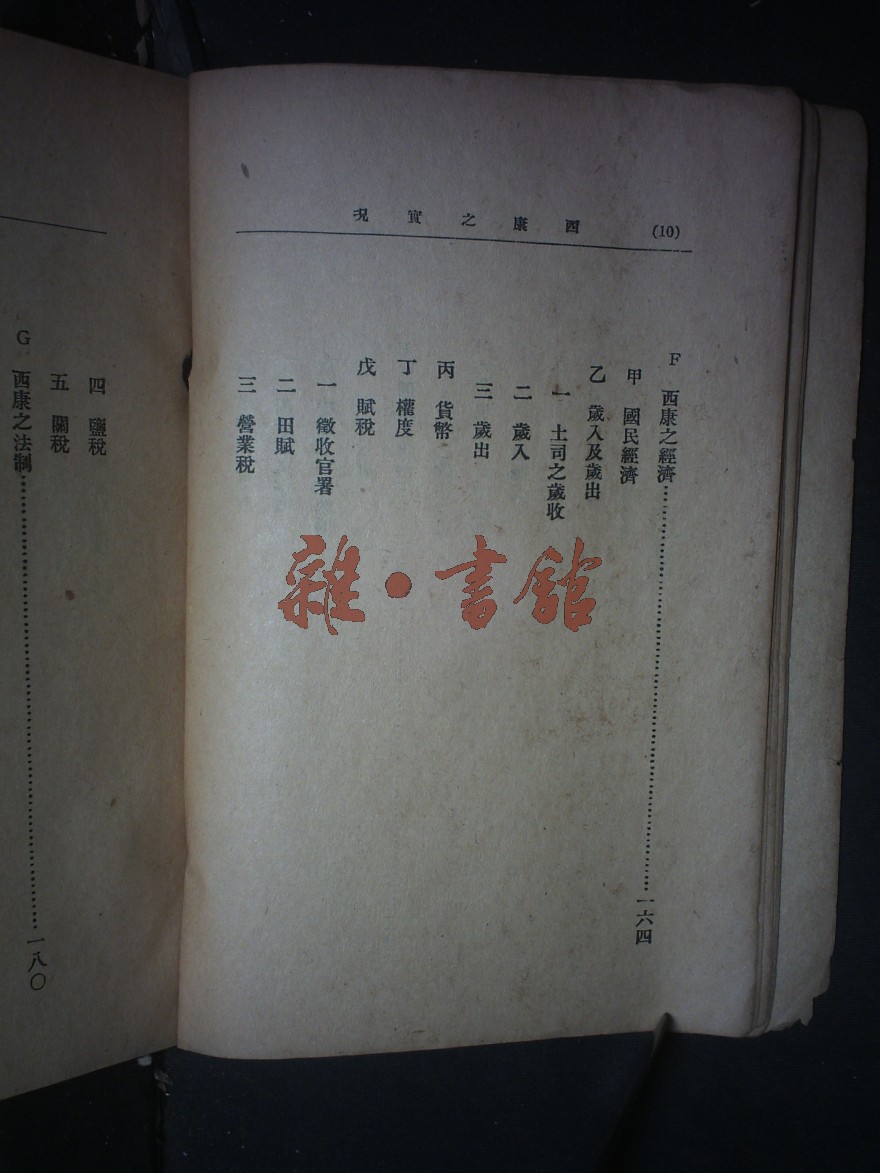 (10)
西康之實況
F 西康之經濟……一六四
甲 國民經濟
乙 歲入及歲出
一 土司之歲收
二 歲入
三 歲出
丙 貨幣
丁 權度
戊 賦稅
一 徵收官署
二 田賦
三 營業稅
四 鹽稅
五 關稅
G 西康之法制……一八〇
雜·書館